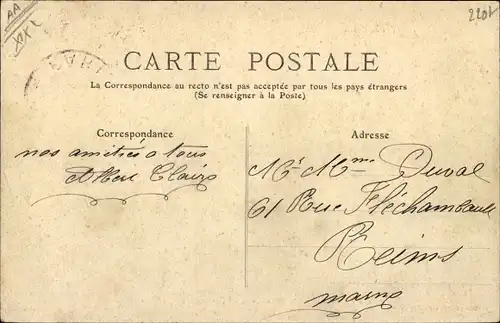 AA
2201
CARTE POSTALE
La Correspondance au recto n'est pas acceptée par tous les pays étrangers
(Se renseigner à la Poste)
Correspondance
nos amitiés a tous
Albert
Adresse
Mr Mme Duval
61 Rue Fléchambault
Reims
Marne